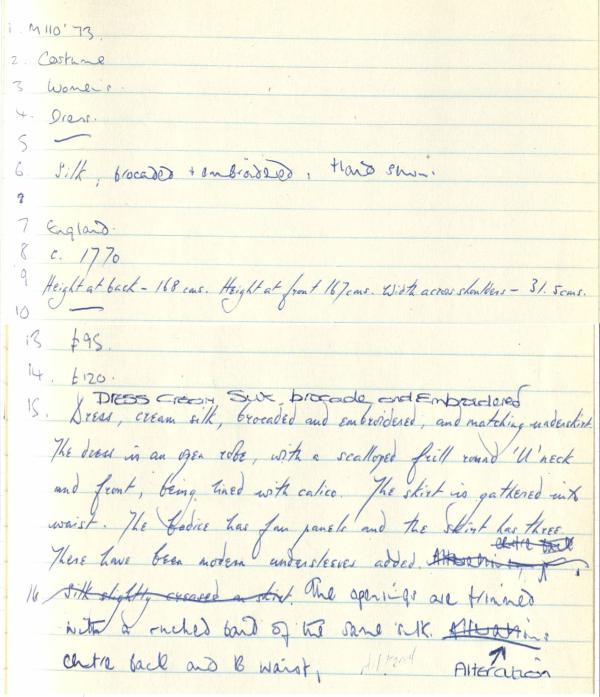 1. M110'73.
2. Costume
3 Women's.
4. Dress.
5 —
6 Silk, brocaded + embroidered, Hand sewn.
8
7 England.
8 c. 1770
9 Height at back - 168 cms. Height at front 167 cms. Width across shoulders - 31.5 cms.
10 —
13 £95.
14. £120.
DRESS Cream Silk, brocade, and Embroidered
15. Dress, cream silk, brocaded and embroidered, and matching underskirt.
The dress is an open robe, with a scalloped frill round 'U' neck
and front, being lined with calico. The skirt is gathered into
waist. The bodice has four panels and the skirt has three.
centre back
There have been modern undersleeves added. Alteration,
16 Silk slightly creased on skirt. The openings are trimmed
with a ruched band of the same silk. Alterations
centre back and B waist,
Alteration